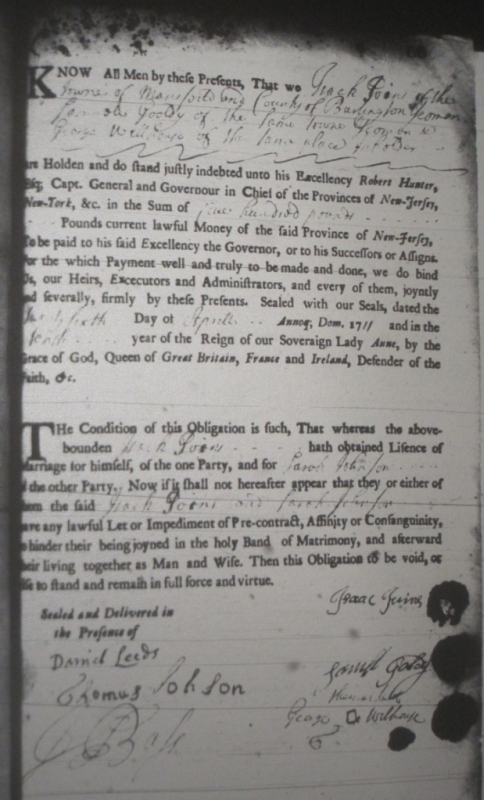 KNOW All Men by these Presents, That we Isack of the
Towne of Mansfeild and County of Burlington Yeoman
of the same Towne Yeoman &
George of the same place
are Holden and do stand justly indebted unto his Excellency Robert Hunter,
Esq; Capt. General and Governour in Chief of the Provinces of New-Jersey,
New-York, &c. in the Sum of five hundred pounds
Pounds current lawful Money of the said Province of New-Jersey,
To be paid to his said Excellency the Governor, or to his Successors or Assigns.
For the which Payment well and truly to be made and done, we do bind
Us, our Heirs, Excecutors and Administrators, and every of them, joyntly
and severally, firmly by these Presents. Sealed with our Seals, dated the
Day of Aprill Annoq; Dom. 1711 and in the
tenth year of the Reign of our Soveraign Lady Anne, by the
Grace of God, Queen of Great Britain, France and Ireland, Defender of the
Faith, &c.
THe Condition of this Obligation is such, That whereas the above-
bounden Isack hath obtained Lisence of
Marriage for himself, of the one Party, and for Sarah Johnson
of the other Party. Now if it shall not hereafter appear that they or either of
them the said Isack and Sarah Johnson
have any lawful Let or Impediment of Pre-contract, Affinity or Consanguinity,
to hinder their being joyned in the holy Band of Matrimony, and afterward
their living together as Man and Wife. Then this Obligation to be void, or
else to stand and remain in full force and virtue.
Isaac
Sealed and Delivered in
the Presence of
Daniel Leeds
Thomas Johson
George
J Bass